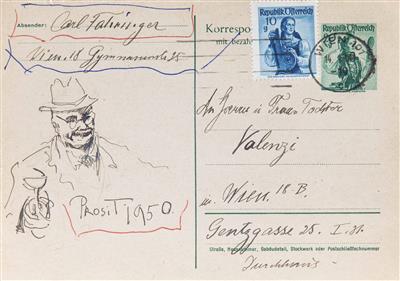 Absender: Carl Fahringer
Wien, 18 Gymnasiumstr 25
PROSIT 1950.
Korrespo
mit bezah
Republik Österreich
10
g
Republik Österreich
WIEN
An Herrn u Frau Doktor
Valenzi
in Wien 18 B.
Gentzgasse 25. I. St.
Straße, Hausnummer, Gebäudeteil, Stockwerk oder Postschließfachnummer